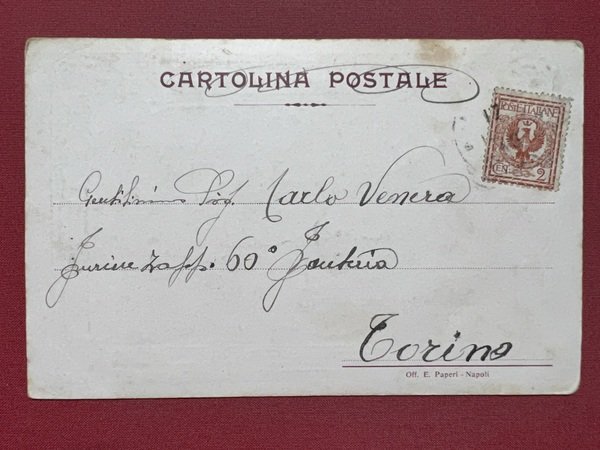 CARTOLINA POSTALE
POSTE ITALIANE
CEN. 2
Gentilissimo Sig. Carlo Venera
Furiere Zapp. 60° Fanteria
Torino
Off. E. Paperi - Napoli